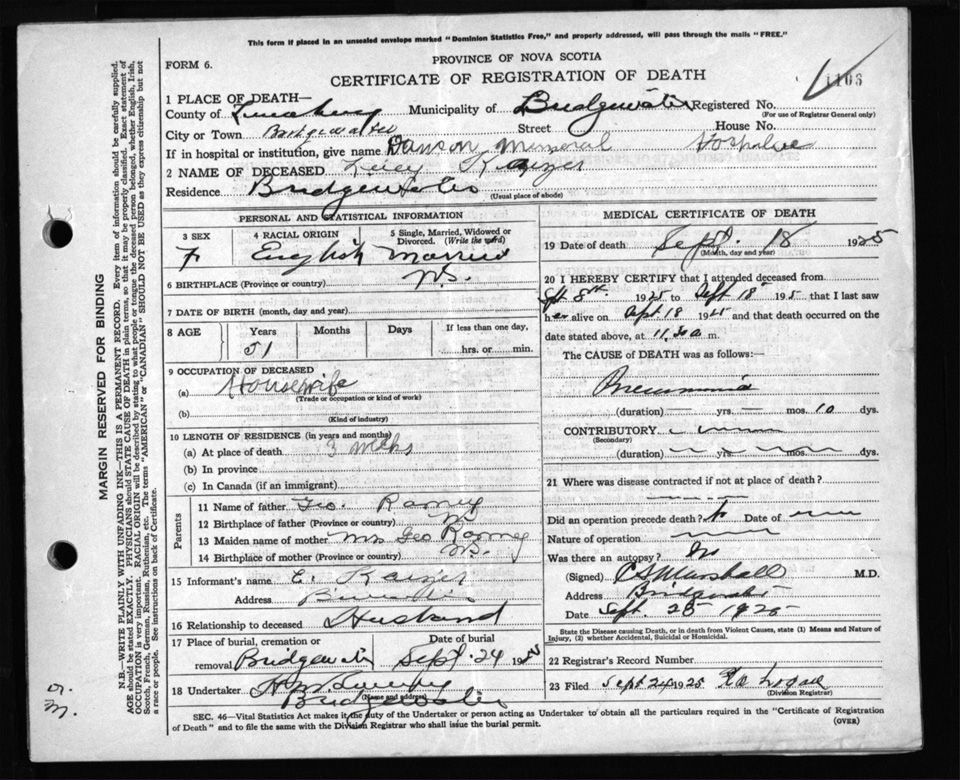 This form if placed in an unsealed envelope marked "Dominion Statistics Free," and properly addressed, will pass through the mails "FREE."
FORM 6.
PROVINCE OF NOVA SCOTIA
CERTIFICATE OF REGISTRATION OF DEATH
1 PLACE OF DEATH—
County of Municipality of Bridgewater Registered No.
(For use of Registrar General only)
City or Town Bridgewater Street House No.
If in hospital or institution, give name Dawson Memorial Hospital
2 NAME OF DECEASED
Residence Bridgewater
(Usual place of abode)
PERSONAL AND STATISTICAL INFORMATION
3 SEX F
4 RACIAL ORIGIN English
5 Single, Married, Widowed or Divorced. (Write the word) Married
6 BIRTHPLACE (Province or country) N.S.
7 DATE OF BIRTH (month, day and year)
8 AGE Years Months Days If less than one day,
51 hrs. or min.
9 OCCUPATION OF DECEASED
(a) Housewife
(Trade or occupation or kind of work)
(b)
(Kind of industry)
10 LENGTH OF RESIDENCE (in years and months)
(a) At place of death 3 weeks
(b) In province
(c) In Canada (if an immigrant)
Parents
11 Name of father Geo. Ramey
12 Birthplace of father (Province or country) N.S.
13 Maiden name of mother Mrs Geo Ramey
14 Birthplace of mother (Province or country) N.S.
15 Informant's name
Address
16 Relationship to deceased Husband
17 Place of burial, cremation or removal Bridgewater
Date of burial Sept. 24 192
18 Undertaker
(Name and address)
Bridgewater
MEDICAL CERTIFICATE OF DEATH
19 Date of death Sept. 18 1925
(Month, day and year)
20 I HEREBY CERTIFY that I attended deceased from
Spt. 8th 1925 to Sept 18 1925 that I last saw
her alive on 18 1925 and that death occurred on the
date stated above, at 11.30 a m.
The CAUSE OF DEATH was as follows:
Pneumonia
(duration) — yrs. — mos. 10 dys.
CONTRIBUTORY
(Secondary)
(duration) yrs. mos. dys.
21 Where was disease contracted if not at place of death?
Did an operation precede death? Date of
Nature of operation
Was there an autopsy? No
(Signed) Marshall M.D.
Address Bridgewater
Date Sept. 25 1925
State the Disease causing Death, or in death from Violent Causes, state (1) Means and Nature of
Injury, (2) whether Accidental, Suicidal or Homicidal.
22 Registrar's Record Number
23 Filed Sept 24 1925
(Division Registrar)
SEC. 46—Vital Statistics Act makes it the duty of the Undertaker or person acting as Undertaker to obtain all the particulars required in the "Certificate of Registration
of Death" and to file the same with the Division Registrar who shall issue the burial permit.
(OVER)
MARGIN RESERVED FOR BINDING
N.B.—WRITE PLAINLY WITH UNFADING INK—THIS IS A PERMANENT RECORD. Every item of information should be carefully supplied.
AGE should be stated EXACTLY. PHYSICIANS should STATE CAUSE OF DEATH in plain terms, so that it may be properly classified. Exact statement of
OCCUPATION is very important. RACIAL ORIGIN will be described by stating to what people or tongue the deceased person belonged, whether English, Irish,
Scotch, French, German, Russian, Ruthenian, etc. The terms "AMERICAN" or "CANADIAN" SHOULD NOT BE USED as they express citizenship but not
a race or people. See instructions on back of Certificate.